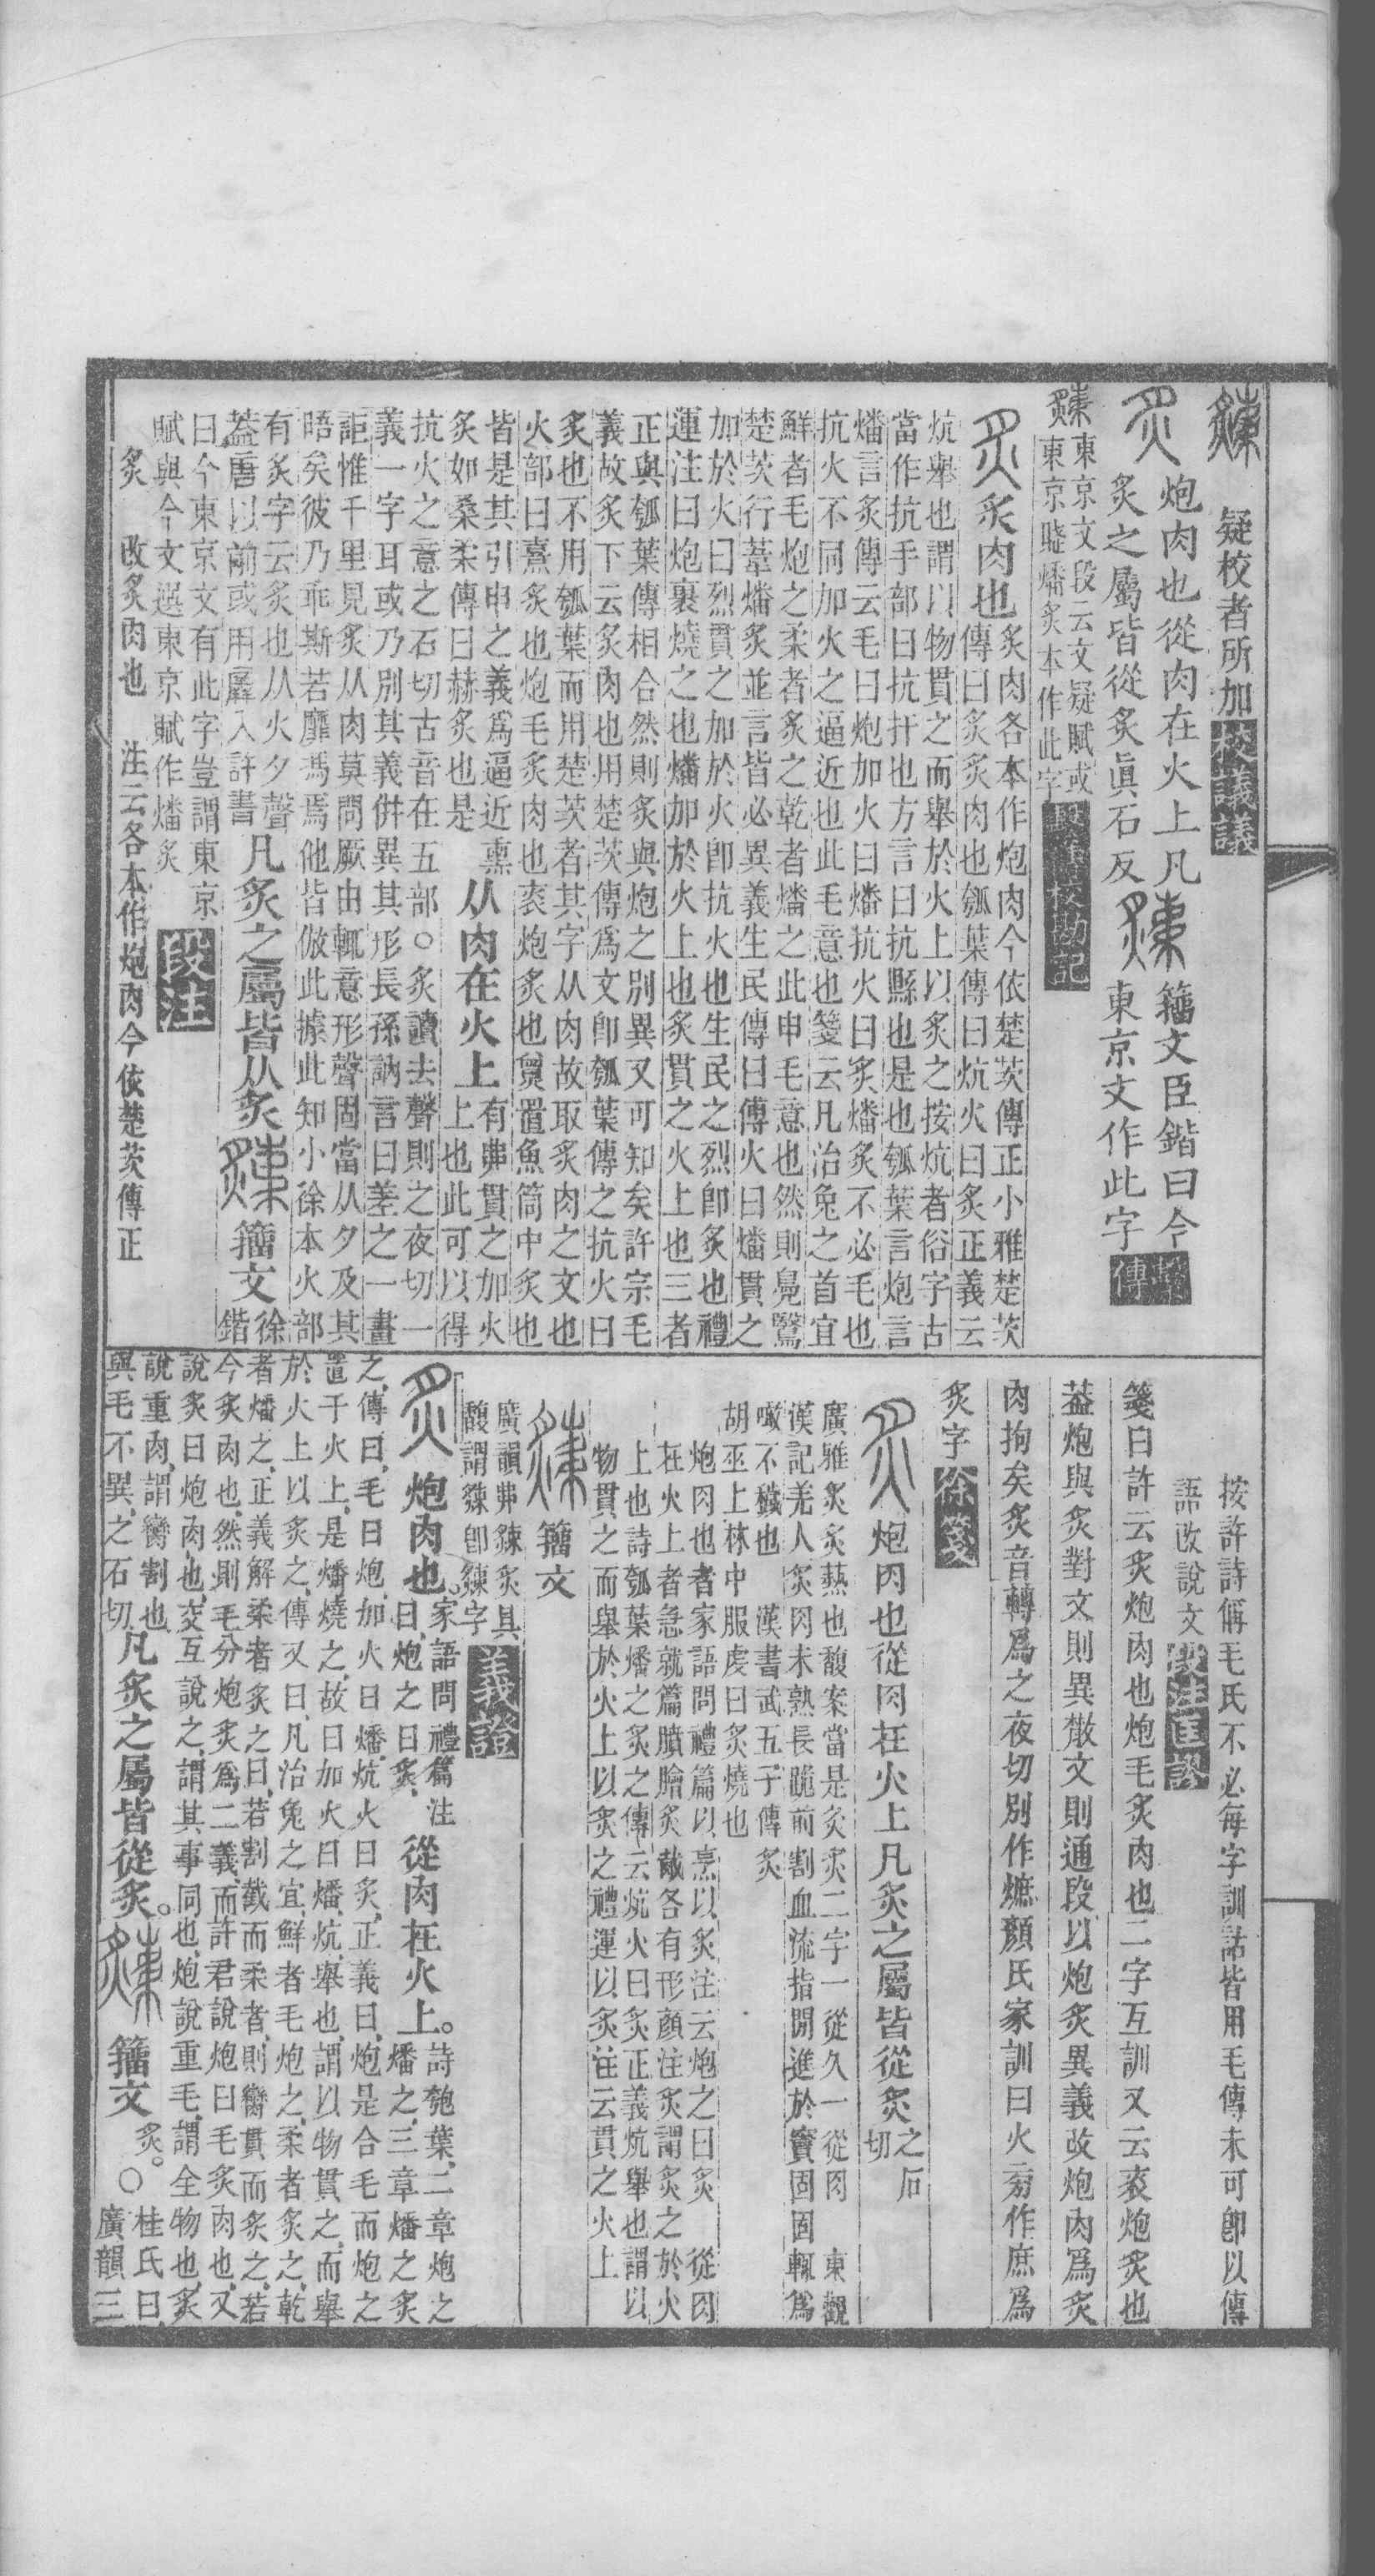 𤐫 疑校者所加 校議議
炙 炮肉也從肉在火上凡
炙之屬皆從炙真石反 𤐫 籒文臣鍇曰今
東京文作此字 繫傳
𤐫東京文段云文疑賦或
東京賦燔炙本作此字
炙 炙肉也 炙肉各本作炮肉今依楚茨傳正小雅楚茨
傳曰炙炙肉也瓠葉傳曰炕火曰炙正義云
炕舉也謂以物貫之而舉於火上以炙之按炕者俗字古
當作抗手部曰抗扞也方言曰抗縣也是也瓠葉言炮言
燔言炙傳云毛曰炮加火曰燔抗火曰炙燔炙不必毛也
抗火不同加火之逼近也此毛意也箋云凡治兔之首宜
鮮者毛炮之柔者炙之乾者燔之此申毛意也然則鳧鷖
楚茨行葦燔炙並言皆必異義生民傳曰傅火曰燔貫之
加於火曰烈貫之加於火卽抗火也生民之烈卽炙也禮
運注曰炮裹燒之也燔加於火上也炙貫之火上也三者
正與瓠葉傳相合然則炙與炮之別異又可知矣許宗毛
義故炙下云炙肉也用楚茨傳爲文卽瓠葉傳之抗火曰
炙也不用瓠葉而用楚茨者其字从肉故取炙肉之文也
火部曰熹炙也炮毛炙肉也衮炮炙也㷶置魚筒中炙也
皆是其引申之義爲逼近熏 从肉在火上 有弗貫之加火
炙如桑柔傳曰赫炙也是 上也此可以得
抗火之意之石切古音在五部○炙讀去聲則之夜切一
義一字耳或乃別其義併異其形長孫訥言曰差之一畫
詎惟千里見炙从肉莫問厥由輒意形聲固當从夕及其
晤矣彼乃乖斯若靡馮焉他皆倣此據此知小徐本火部
有炙字云炙也从火夕聲 凡炙之屬皆从炙 𤐫 籒文 徐
蓋唐以前或用羼入許書 鍇
曰今東京文有此字豈謂東京
賦與今文選東京賦作燔炙 段注
炙 改炙肉也 注云各本作炮肉今依楚茨傳正
按許詩偁毛氏不必每字訓詁皆用毛傳未可卽以傳
語改說文 段注匡謬
箋曰許云炙炮肉也炮毛炙肉也二字互訓又云衮炮炙也
葢炮與炙對文則異散文則通段以炮炙異義改炮肉爲炙
肉拘矣炙音轉爲之夜切別作㷮顏氏家訓曰火旁作庶爲
炙字 徐箋
炙 炮肉也從肉在火上凡炙之屬皆從炙 之石
切
廣雅炙炙爇也馥案當是灸炙二字一從久一從肉 東觀
漢記羌人炙肉未熟長跪前割血流指閒進於竇固固輒爲
㗖不穢也 漢書武五子傳炙
胡巫上林中服虔曰炙燒也
炮肉也者家語問禮篇以烹以炙注云炮之曰炙 從肉
在火上者急就篇膹膾炙胾各有形顏注炙謂炙之於火
上也詩瓠葉燔之炙之傳云炕火曰炙正義炕舉也謂以
物貫之而舉於火上以炙之禮運以炙注云貫之火上
𤐫 籒文
廣韻弗𤐫炙具
馥謂𤐫卽𤐫字 義證
炙 炮肉也。家語問禮篇注
曰,炮之曰炙, 從肉在火上。詩匏葉,二章炮之
燔之,三章燔之炙
之,傳曰,毛曰炮,加火曰燔,炕火曰炙,正義曰,炮是合毛而炮之
置于火上,是燔燒之,故曰加火曰燔,炕,舉也,謂以物貫之,而舉
於火上以炙之,傳又曰,凡治兔之宜,鮮者毛炮之,柔者炙之,乾
者燔之,正義解柔者炙之曰,若割截而柔者,則臠貫而炙之,若
今炙肉也,然則毛分炮炙爲二義,而許君說炮曰毛炙肉也,又
說炙曰炮肉也,交互說之,謂其事同也,炮說重毛,謂全物也,炙
說重肉,謂臠割也 凡炙之屬皆從炙。 𤐫 籒文 炙。○桂氏曰
與毛不異,之石切 廣韻三